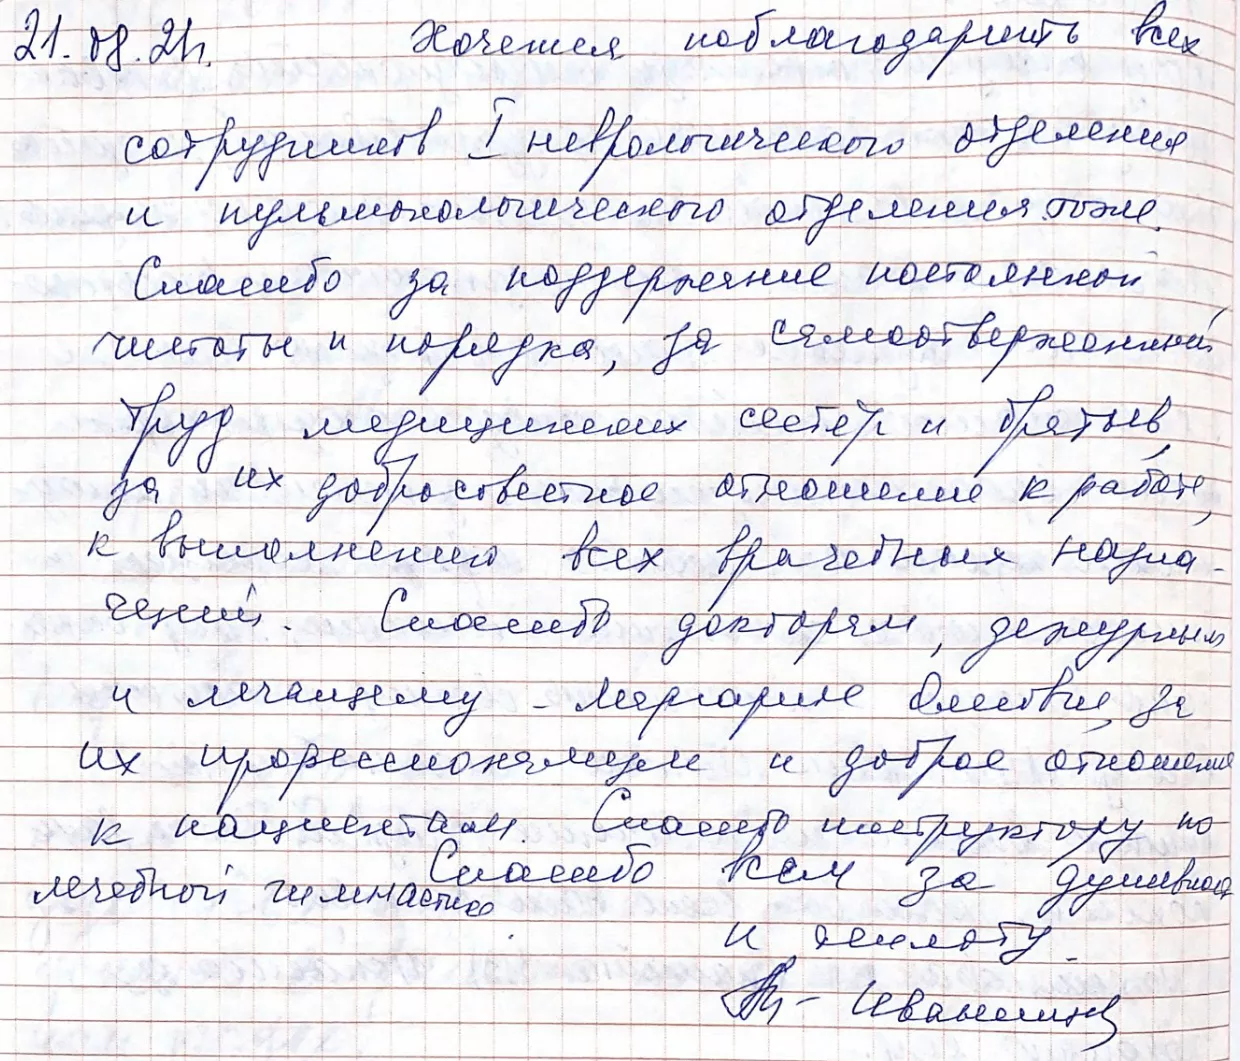 21.08.21г. Хочется поблагодарить всех
сотрудников I неврологического отделения
и пульмонологического отделения тоже.
Спасибо за поддержание постоянной
чистоты и порядка, за самоотверженный
труд медицинских сестёр и братьев,
за их добросовестное отношение к работе,
к выполнению всех врачебных назна-
чений. Спасибо докторам, дежурным
и лечащему - Маргарите за
их профессионализм и доброе отношение
к пациентам. Спасибо инструктору по
лечебной гимнастике.
Спасибо всем за душевность
и теплоту.